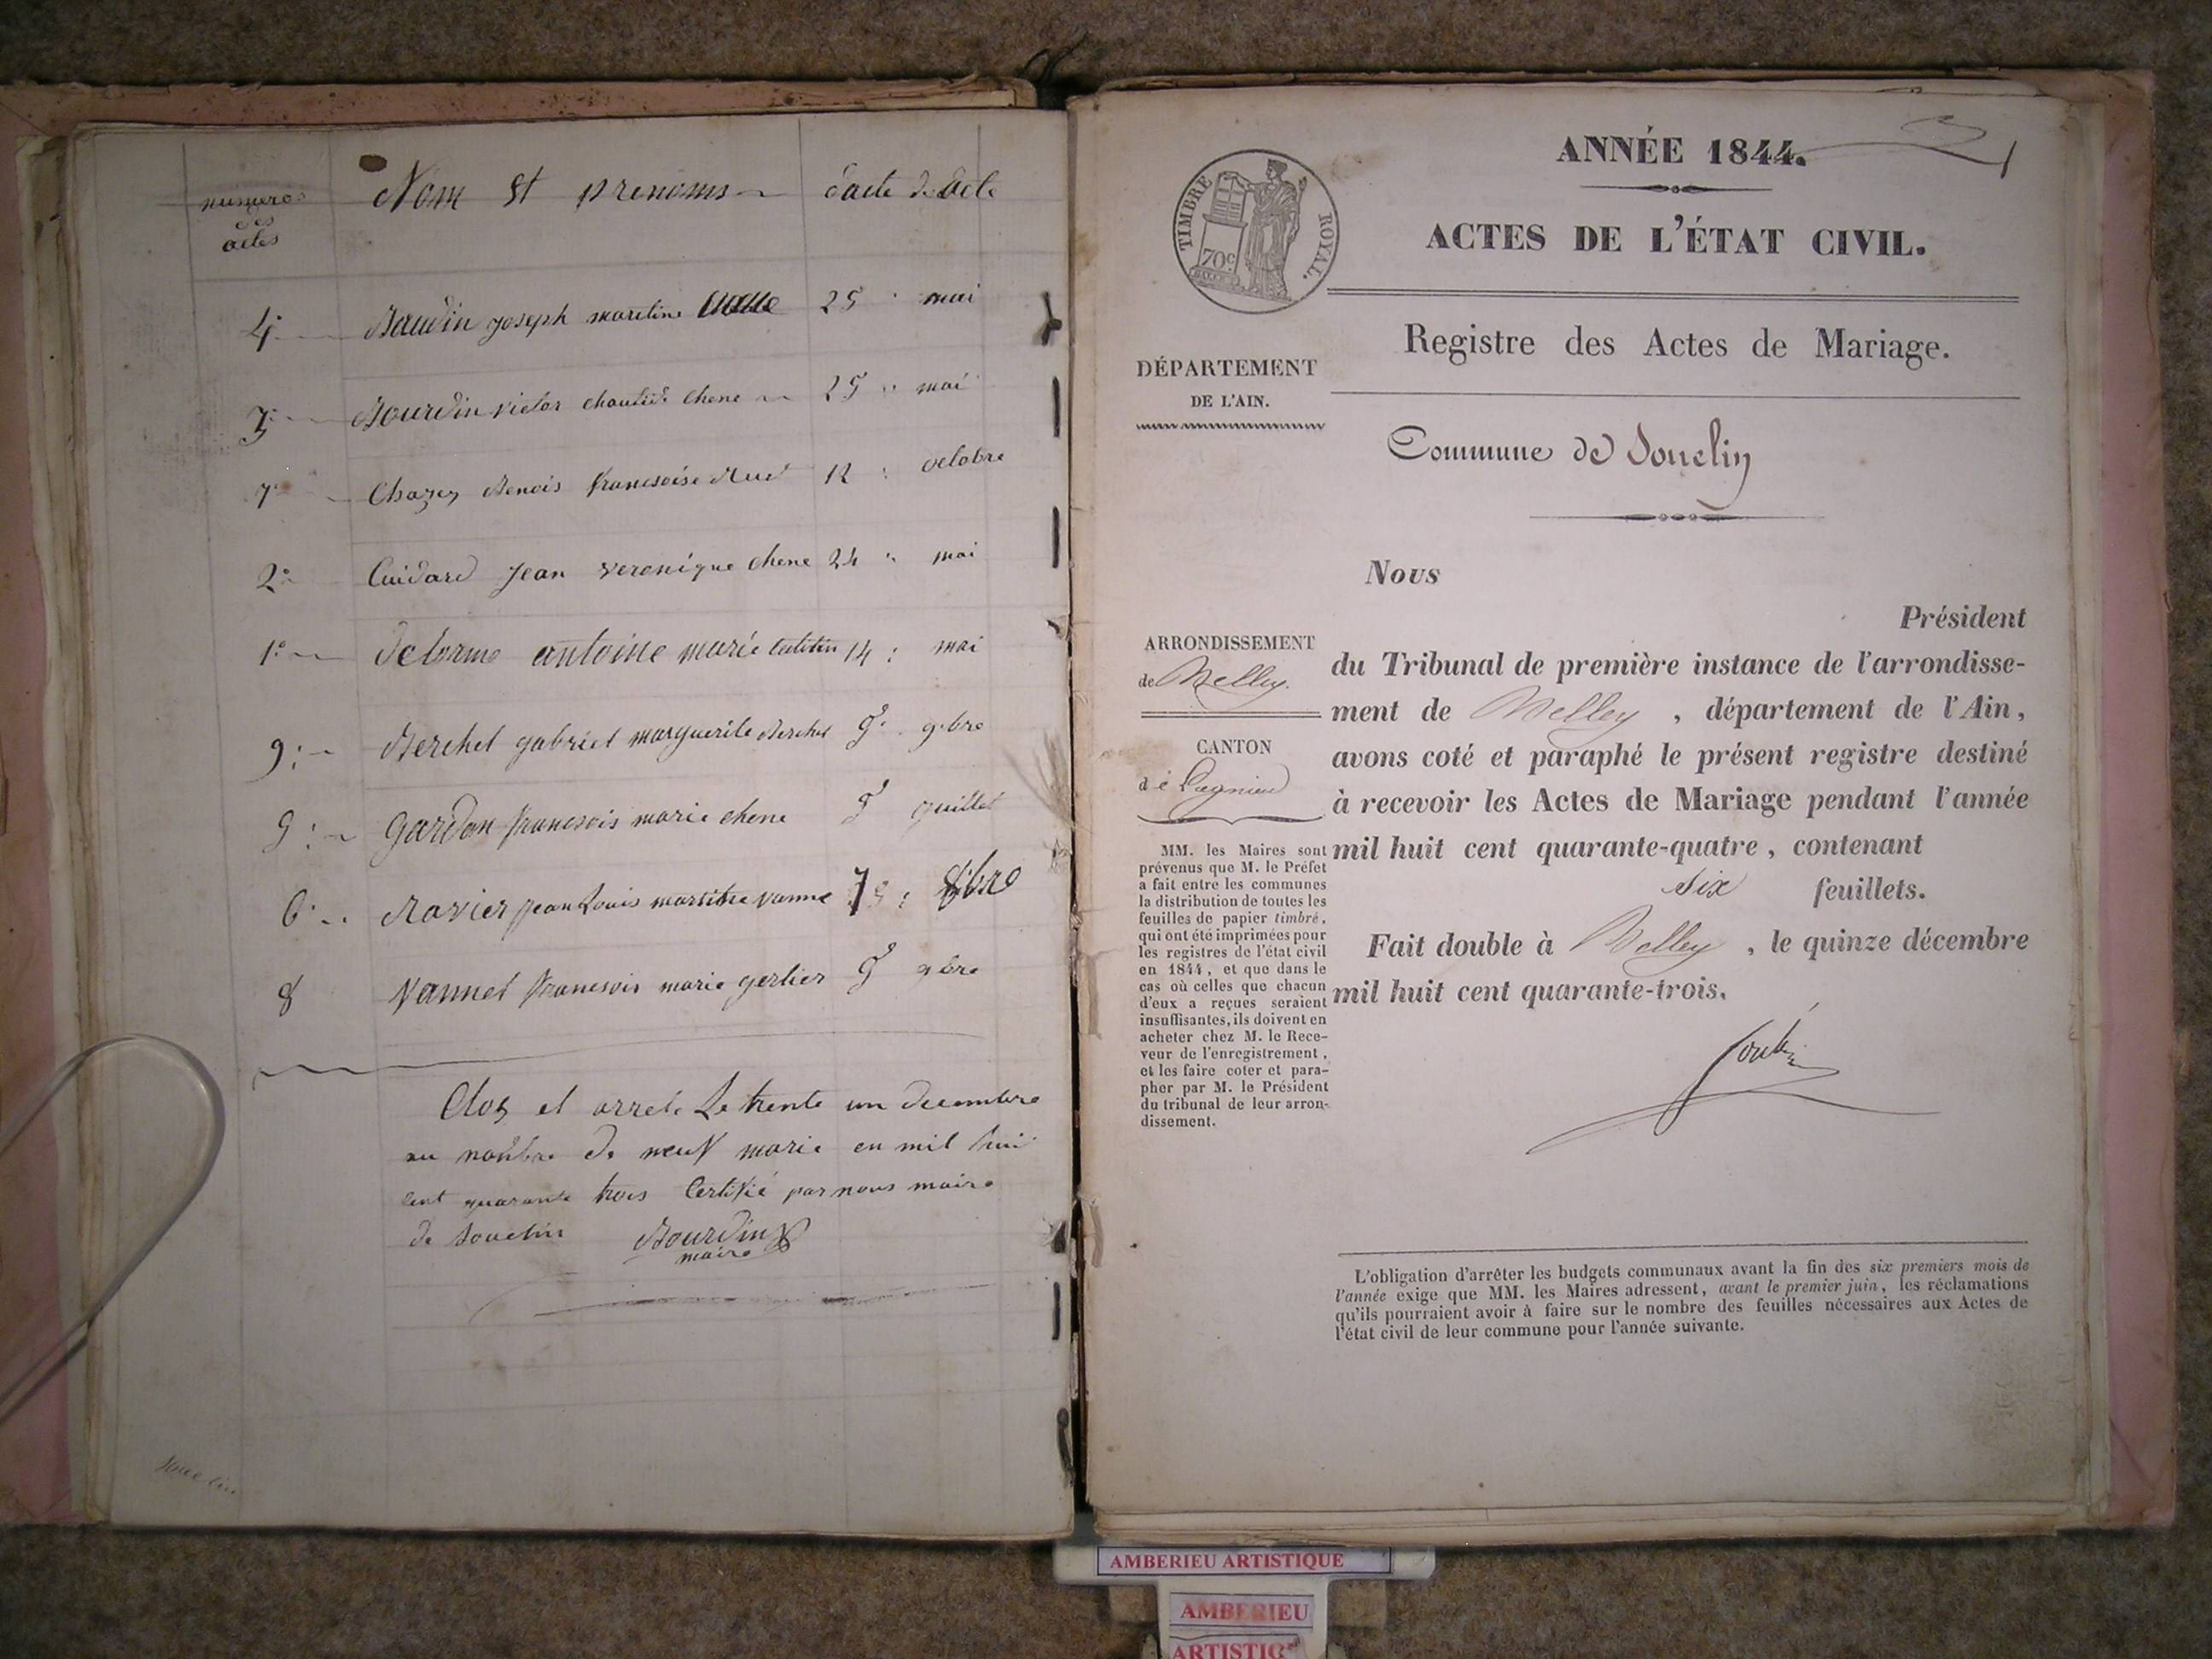 numeros des actes
Nom et prenoms
date de acte
4. Baudin joseph mareline 25 mai
3. Bourdin victor Chene 25 mai
7. Chazey Benois francoise Rud 12 octobre
2. Cuidard jean veronique chene 24 mai
1. Delorme antoine marie 14 mai
9. Berchet gabriel marguerite Berchet 9bre
Gardon francois marie chene juillet
6. Ravier jean Louis vanne 8bre
8 Vannet francois marie gerlier 9bre
Clos et arrete Le trente un decembre
au nombre de neuf marie en mil hui
cent quarante trois Certifié par nous maire
de souclin Bourdin
maire
souclin
ANNÉE 1844.
ACTES DE L'ÉTAT CIVIL.
TIMBRE ROYAL.
70c
Registre des Actes de Mariage.
DÉPARTEMENT
DE L'AIN.
Commune de Souclin
Nous
Président
ARRONDISSEMENT
de Belley.
CANTON
de Lagnieu
du Tribunal de première instance de l'arrondisse-
ment de Belley, département de l'Ain,
avons coté et paraphé le présent registre destiné
à recevoir les Actes de Mariage pendant l'année
mil huit cent quarante-quatre, contenant
six feuillets.
Fait double à Belley, le quinze décembre
mil huit cent quarante-trois.
MM. les Maires sont
prévenus que M. le Préfet
a fait entre les communes
la distribution de toutes les
feuilles de papier timbré,
qui ont été imprimées pour
les registres de l'état civil
en 1844, et que dans le
cas où celles que chacun
d'eux a reçues seraient
insuffisantes, ils doivent en
acheter chez M. le Rece-
veur de l'enregistrement,
et les faire coter et para-
pher par M. le Président
du tribunal de leur arron-
dissement.
L'obligation d'arrêter les budgets communaux avant la fin des six premiers mois de
l'année exige que MM. les Maires adressent, avant le premier juin, les réclamations
qu'ils pourraient avoir à faire sur le nombre des feuilles nécessaires aux Actes de
l'état civil de leur commune pour l'année suivante.
AMBERIEU ARTISTIQUE
AMBERIEU
ARTISTIQ